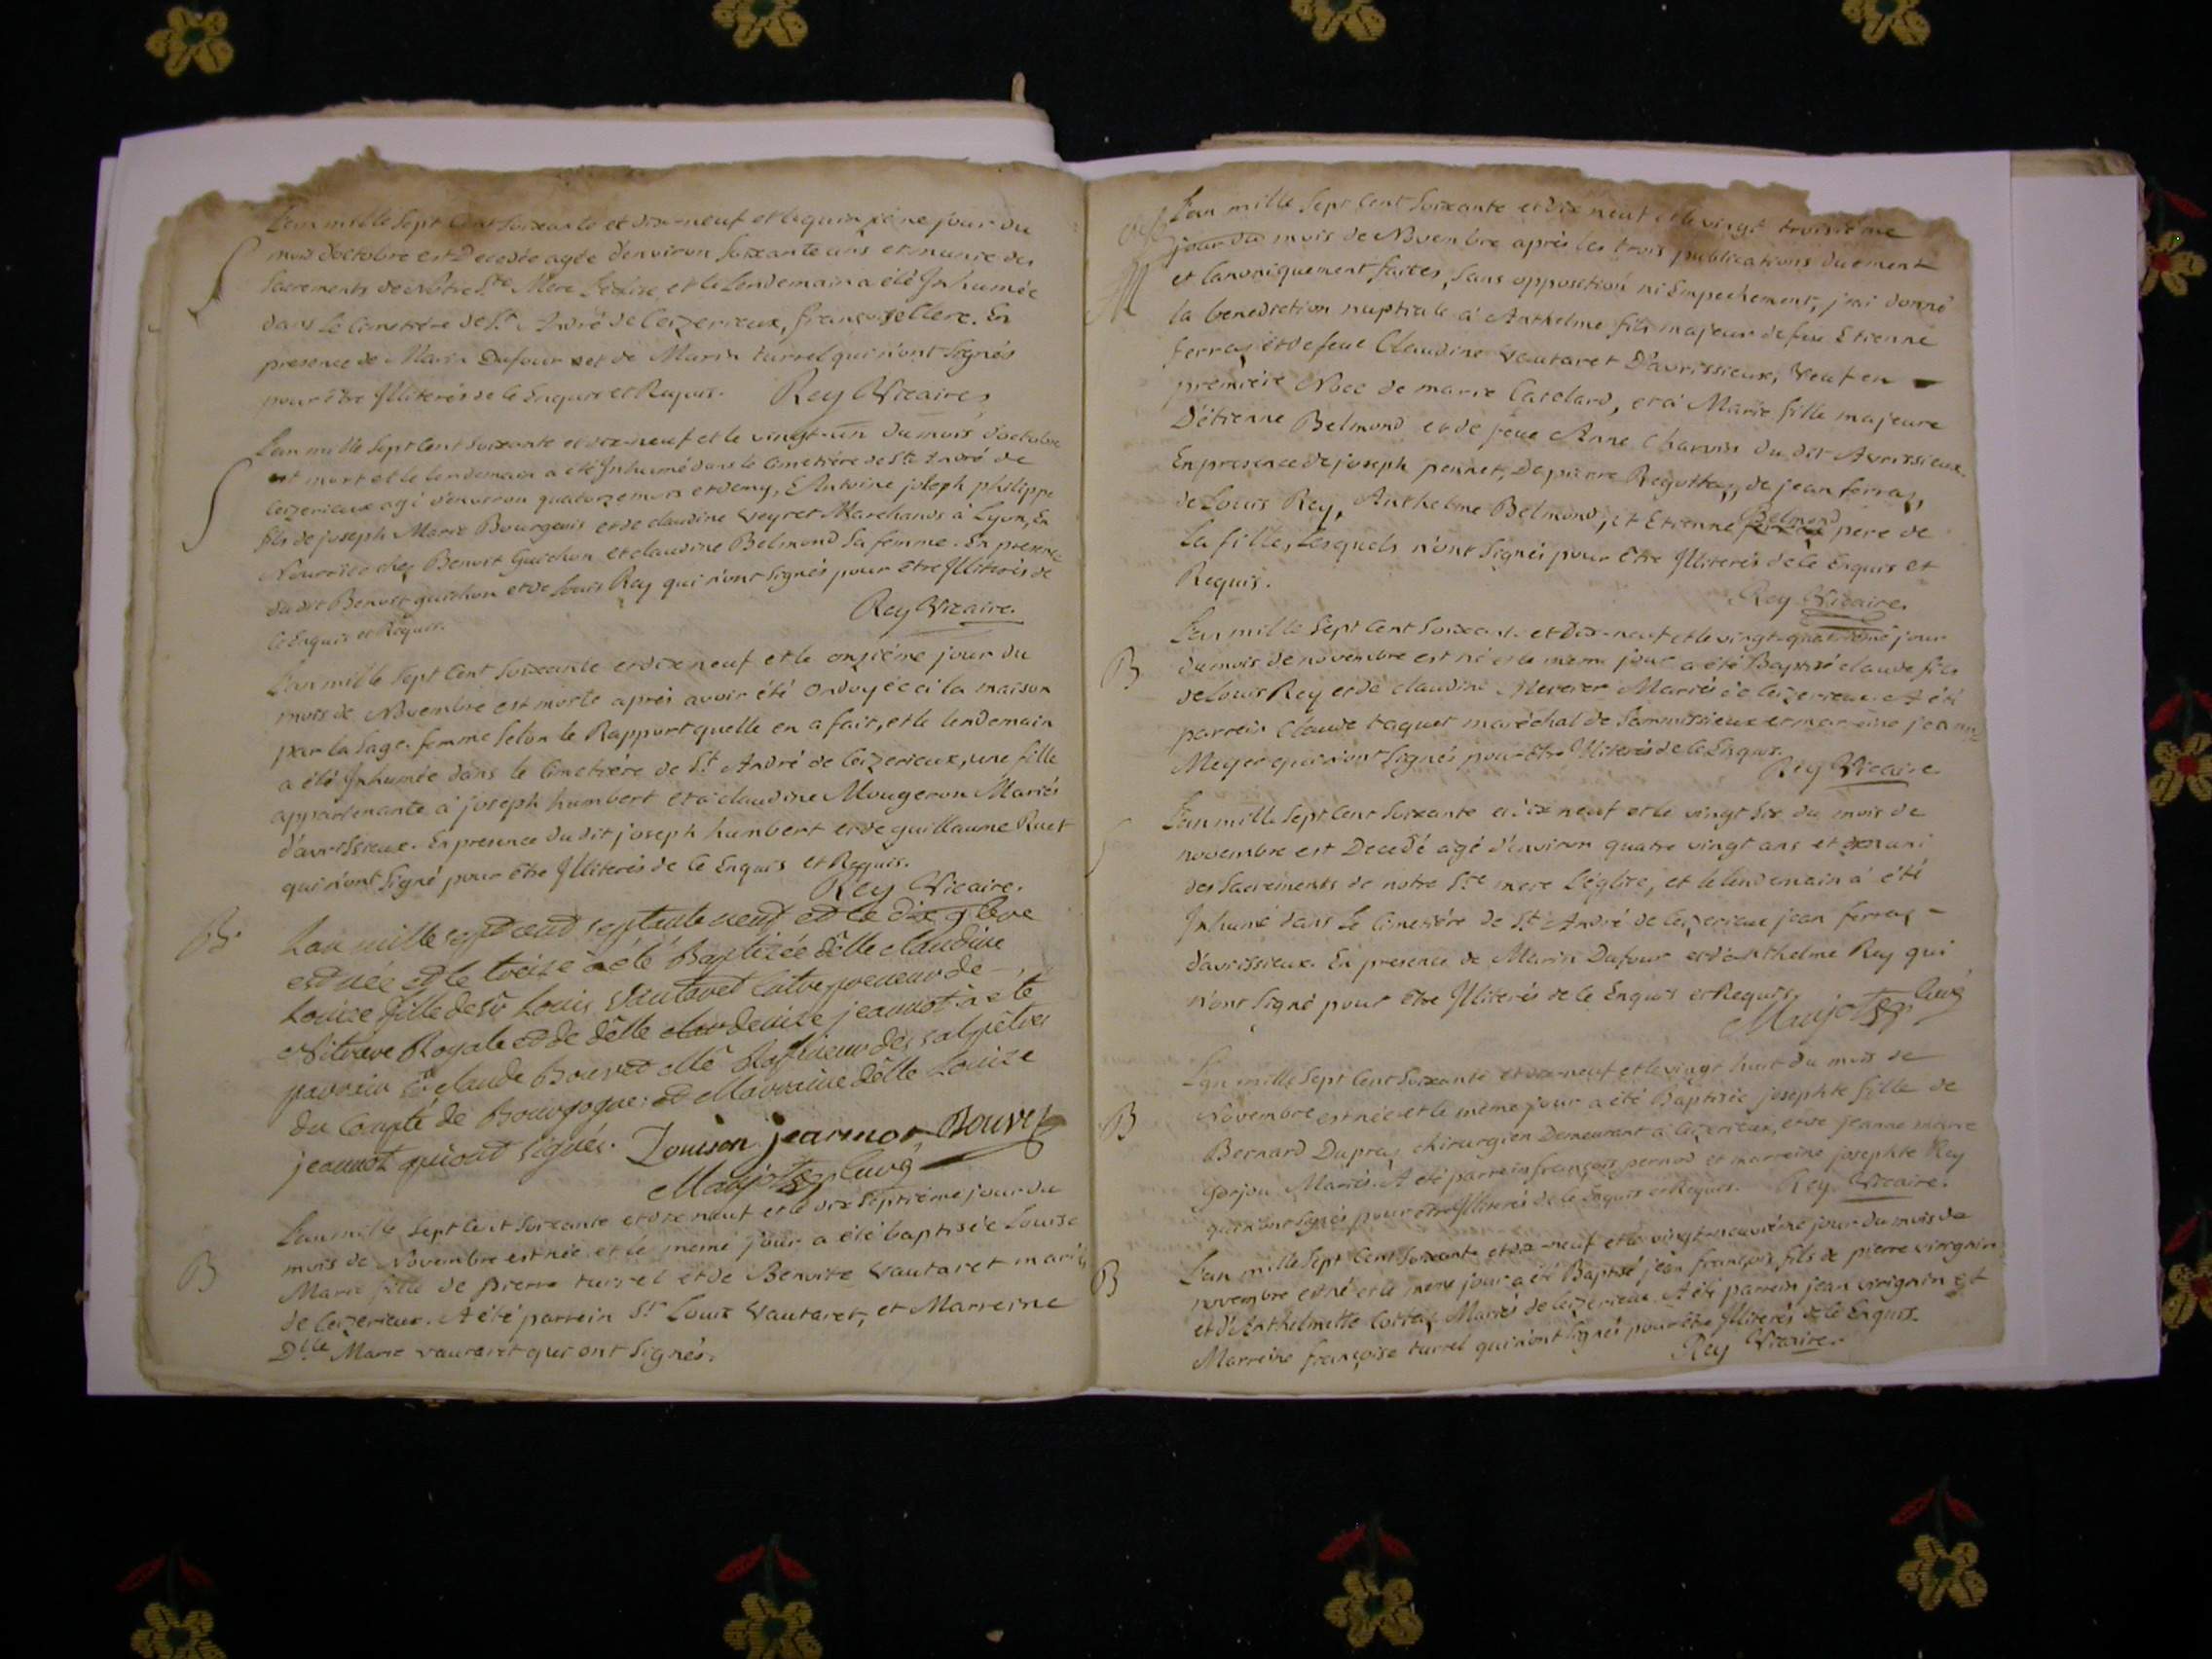 L'an mille Sept Cent Soixante et dix-neuf et le quinzième jour du
mois d'octobre est Decedée agée d'environ Soixante ans et munie des
Sacrements de Nôtre Ste Mere L'église, et le Lendemain a été Inhumée
dans le Cimetière de St André de Ceizerieux, françoise Clerc. En
presence de Marin Dufour et de Marin turrel qui n'ont Signés
pour être Illiterés de ce Enquis et Requis. Rey Vicaire
S
L'an mille Sept Cent Soixante et dix-neuf et le vingt-un du mois d'octobre
est mort et le lendemain a été Inhumé dans le Cimetière de St André de
Ceizerieux agé d'environ quatorze mois et demy, Antoine joseph philippe
fils de joseph Marie Bourgeois et de claudine Veyret Marchands à Lyon, En
Nourrice chez Benoit Guichon et claudine Belmond Sa femme. En presence
du dit Benoit guichon et de Louis Rey qui n'ont Signés pour être Illiterés de
Ce Enquis et Requis.
Rey Vicaire.
S
L'an mille Sept Cent Soixante et dix neuf et le onzième jour du
mois de Novembre est morte après avoir été Ondoyée à la maison
par la Sage-femme Selon le Rapport quelle en a fait, et le lendemain
a été Inhumée dans le Cimetière de St André de Ceizerieux, une fille
appartenante à joseph humbert et à claudine Mougeron Mariés
d'avrissieux. En presence du dit joseph humbert et de guillaume Ruet
qui n'ont Signé pour être Illiterés de ce Enquis et Requis.
Rey Vicaire.
B.
L'an mille sept cent septante neuf et le dix 9bre
est née et le treize a été Baptizée dlle claudine
Louize fille de sr Louis Vautaret Entrepreneur de
Nitriere Royale et de dlle denize jeannot à été
parrain sr claude Bouvet Me Raffineur des salpêtres
du Comté de Bourgogne: et Marraine dlle Louize
jeannot qui ont signés. Louison jeannot Bouvet
Maujot curé
B
L'an mille Sept Cent Soixante et dix neuf et le dix Septième jour du
mois de Novembre est née et le meme jour a été baptisée Louise
Marie fille de pierre turrel et de Benoite Vautaret mariés
de Ceizerieux. A été parrein Sr Louis Vautaret, et Marreine
Dlle Marie Vautaret qui ont Signés.
M
L'an mille Sept Cent Soixante et dix neuf et le vingt troisième
jour du mois de Novembre après les trois publications duement
et Canoniquement faites, Sans opposition ni Empechement, j'ai donné
la benediction nuptiale à Anthelme fils majeur de feu Etienne
ferraz et de feue Claudine Vautaret D'avrissieux, Veuf en
première Noce de marie Catelard, et à Marie fille majeure
D'étienne Belmond et de feue Anne Charvin du dit Avrissieux.
En presence de joseph pennet, De pierre Reguttaz, de jean ferraz,
de Louis Rey, Anthelme Belmond, et Etienne Belmond pere de
La fille, Lesquels n'ont Signés pour être Illiterés de ce Enquis et
Requis.
Rey Vicaire.
B
L'an mille Sept Cent Soixante et Dix-neuf et le vingt-quatrième jour
du mois de novembre est né et le meme jour a été Baptisé claude fils
de Louis Rey et de claudine Mariés de Ceizerieux. A été
parrein Claude taquet maréchal de Sammissieux et marreine jeanne
Meyer qui n'ont Signés pour être Illiterés de ce Enquis.
Rey Vicaire
S
L'an mille Sept Cent Soixante et dix neuf et le vingt Six du mois de
novembre est Decedé agé d'environ quatre vingt ans et muni
des Sacrements de notre Ste mere L'église, et le lendemain a été
Inhumé dans Le Cimetière de St André de Ceizerieux jean ferraz
d'avrissieux. En presence de Marin Dufour et d'Anthelme Rey qui
n'ont Signé pour être Illiterés de ce Enquis et Requis.
Maujot curé
B
L'an mille Sept Cent Soixante et dix-neuf et le vingt huit du mois de
Novembre est née et le même jour a été Baptisée josephte fille de
Bernard Dupraz chirurgien Demeurant à Ceizerieux, et de jeanne marie
Gorjou Mariés. A été parrein françois pernod et marreine josephte Rey
qui n'ont Signés pour être Illiterés de ce Enquis et Requis. Rey Vicaire.
B
L'an mille Sept Cent Soixante et dix-neuf et le vingt-neuvième jour du mois de
novembre est né et le meme jour a été Baptisé jean françois fils de pierre virignin
et d'Anthelmette Cottaz Mariés de Ceizerieux. A été parrein jean virignin et
Marreine françoise turrel qui n'ont Signés pour être Illiterés de ce Enquis.
Rey Vicaire.